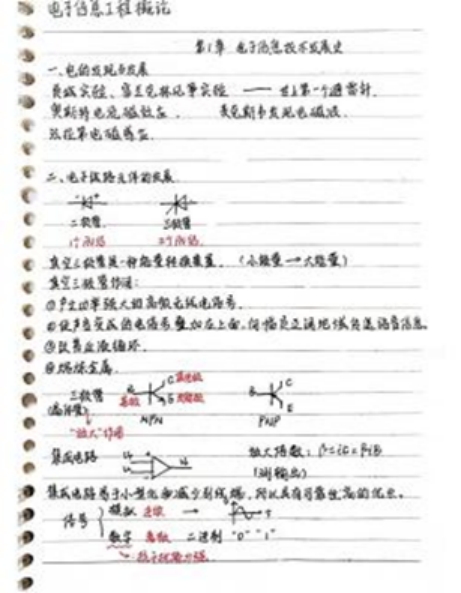 电子信息工程概论
第1章 电子信息技术发展史
一、电的发现与发展
费城实验、富兰克林风筝实验 —— 世上第一个避雷针.
奥斯特电流磁效应. 麦克斯韦发现电磁波.
法拉第电磁感应.
二、电子线路元件的发展.
二极管 三极管
1个PN结 2个PN结
真空三极管是一种能量转换装置. (小能量→大能量)
真空三极管作用:
①产生功率强大的高频无线电信号.
②使声音变成的电信号叠加在上面,何幅员正调地域负送语音信息.
③促进血液循环.
④熔炼金属.
三极管 C 集电极 C
(晶体管) 基极 B E 发射极 B E
"放大"作用 NPN PNP
集成电路 放大倍数: β=iC÷iB
(测输出)
集成电路易于小型化和减少引线端,所以具有可靠性高的优点.
信号 模拟 连续 →
数字 离散 二进制 "0" "1"
抗干扰能力强.